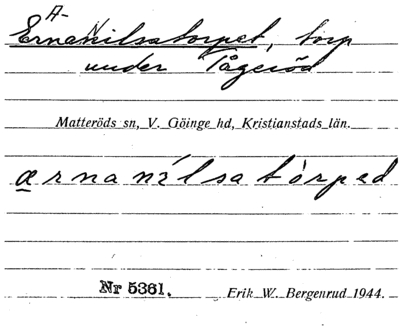 A-
Ernanilsatorpet, torp
under Tågeröd
Matteröds sn, V. Göinge hd, Kristianstads län.
ærnanilsatòrped
Nr 5361. Erik W. Bergenrud 1944.